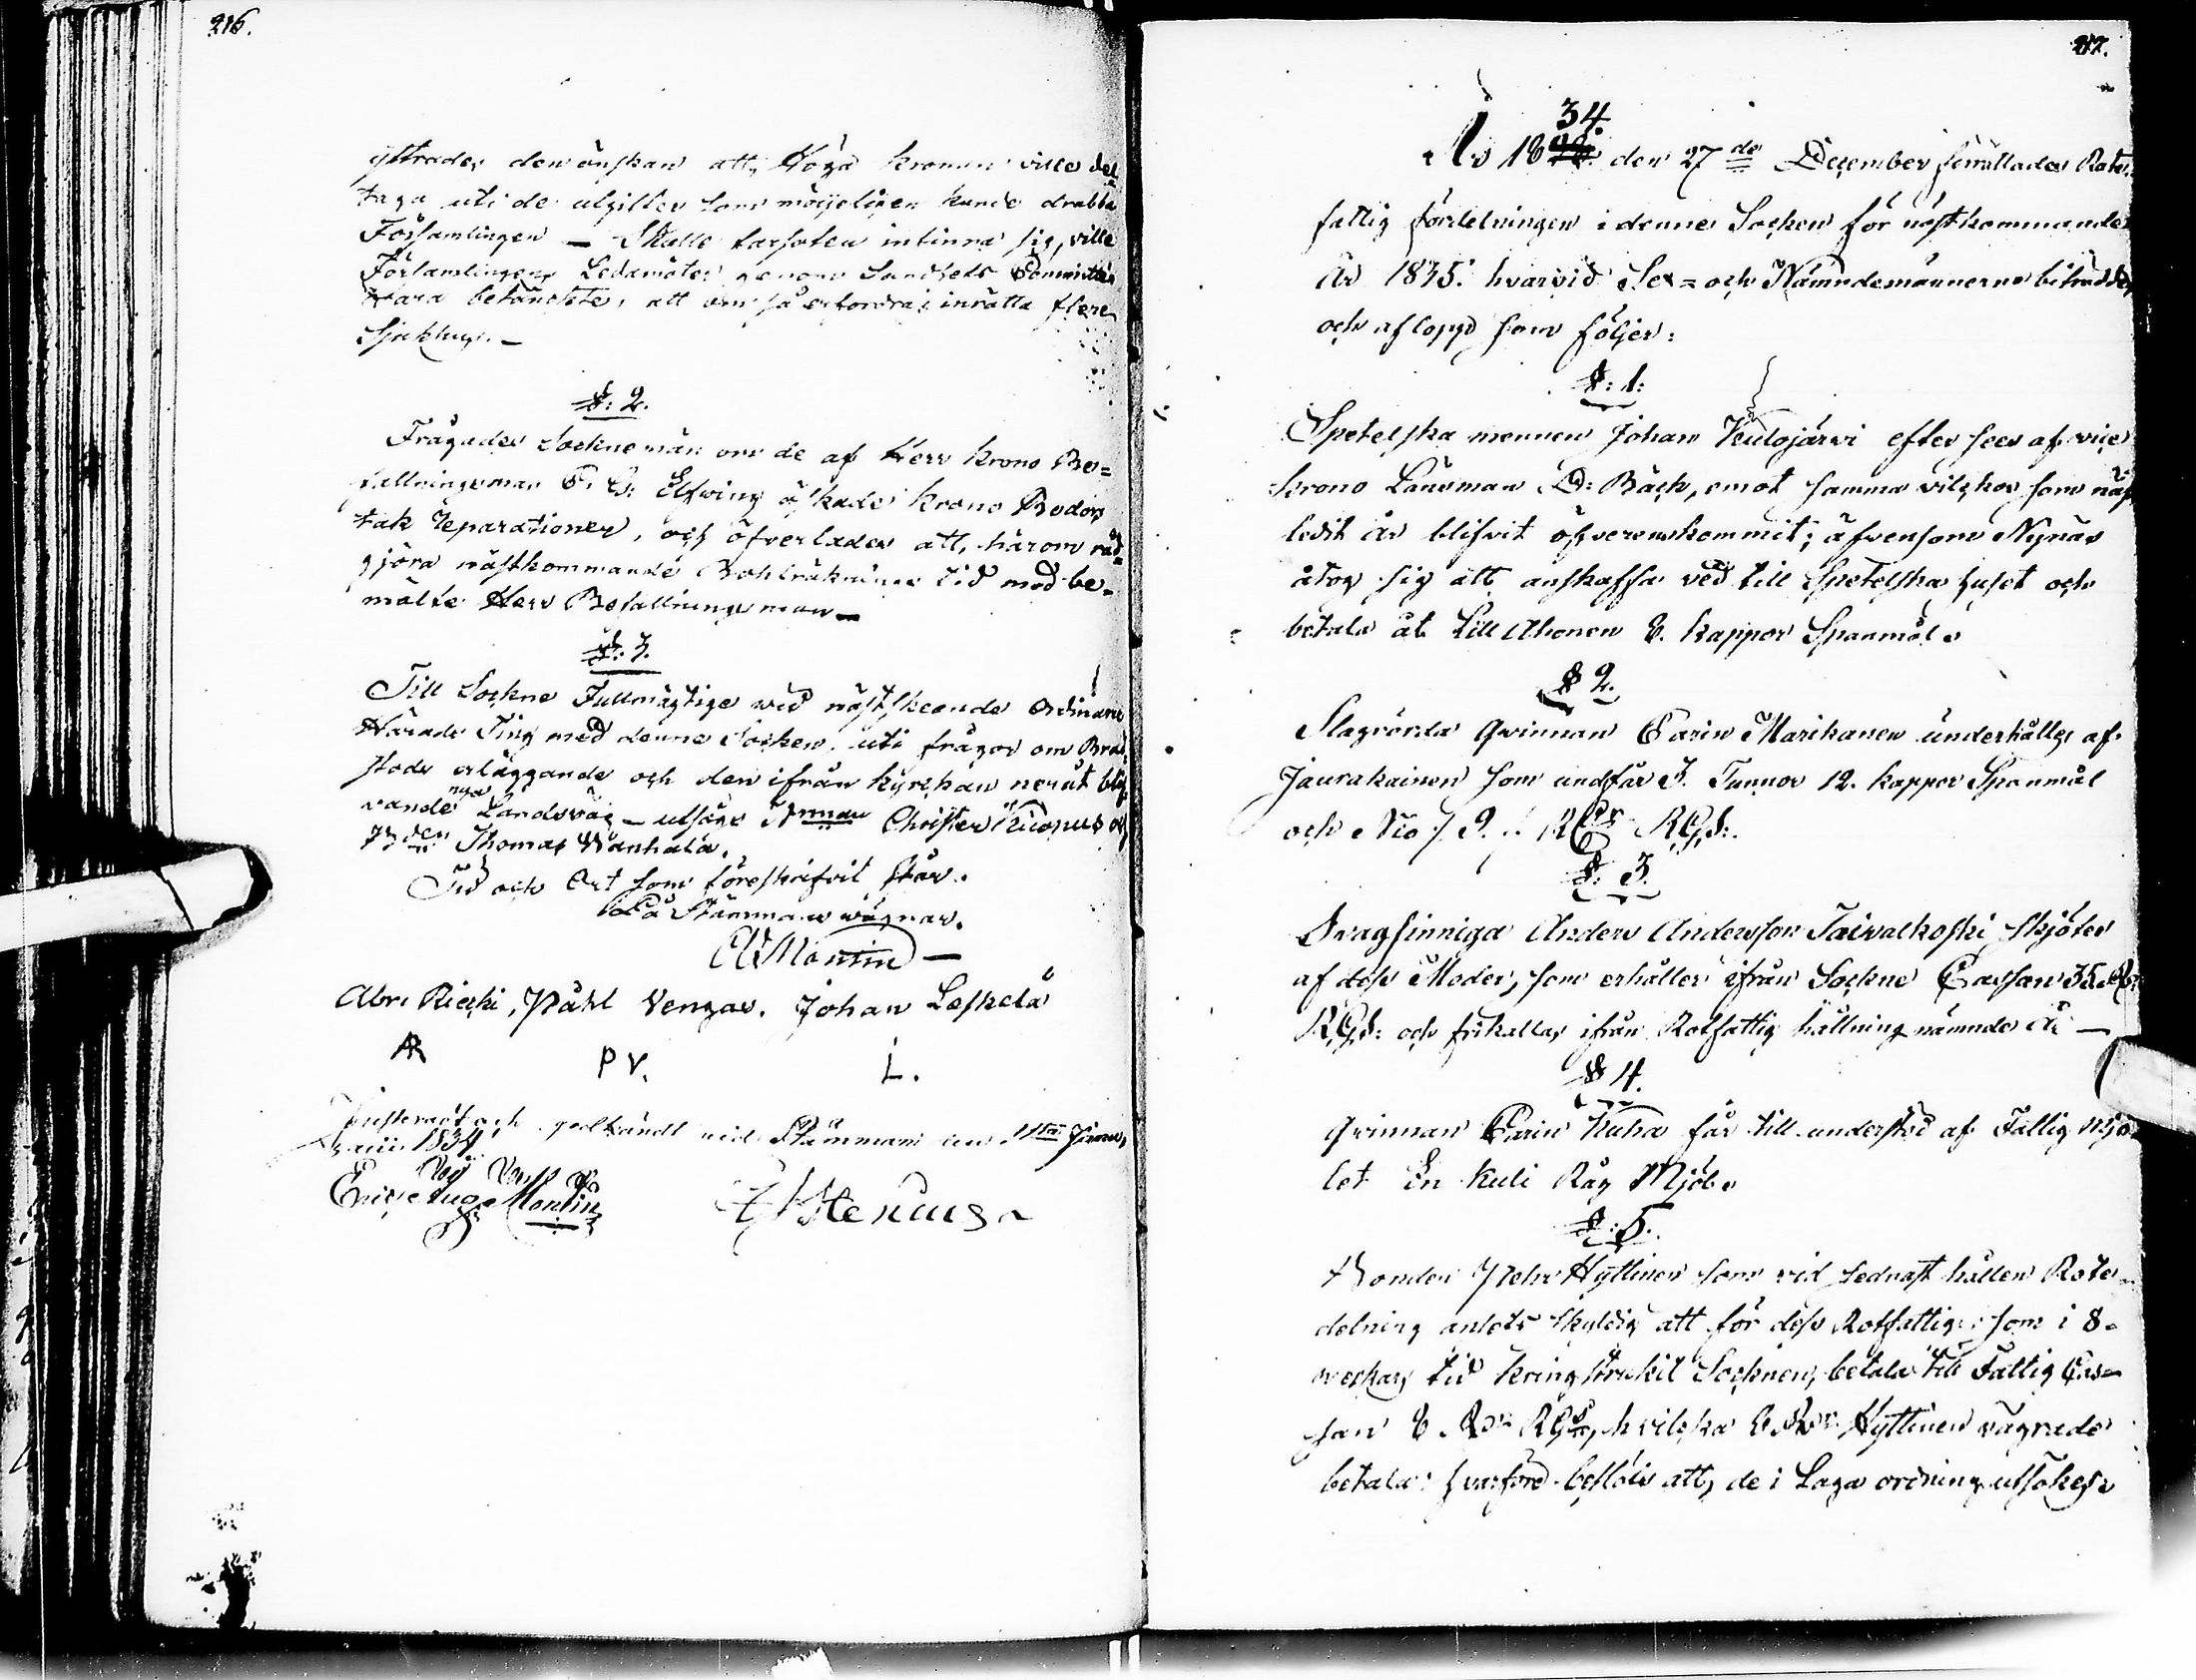 216.
yttrades den önskan att, Höga Kronan ville del
taga uti de utgifter som möijeligen kunde drabba
Församlingen — Skulle farsoten infinna sig, ville
Församlingens Ledamöter genom Sundhets Committén
vara betänckte, att om så erfordras inrätta flere
Sjukhus. —
§: 2.
Frågades Sockne män om de af Herr Krono Be=
fallningsman E. G: Elfving ökade Krono Bodors
tak Reparationer, och öfverlades att, härom råd=
gjöra nästkommande Bohlräknings tid med be-
mälte Herr Befallningsman —
§: 3.
Till Sockne Fullmägtige wid nästskeende Ordinarie
Härads Ting med denne Socken, uti frågor om
stods erläggande och den ifrån kyrckan nerut blif
vande nya Landsväg — utsågs Christer och
Thomas Wanhala.
Tid och Ort som föreskrifvit står.
På Stämmans wägnar.
EAMontin —
Abr: Riecki, Påhl Vengas. Johan Leskelä
AR PV. L.
Justeradt och godkändt vid Stämman den 1sta
1834.
Eric Aug: Montin
217.
34.
År 18 den 27de December förrättades Rote=
fattig fördelningen i denne Socken för nästkommande
år 1835. hvarvid Sex= och Nämndemännerne biträdde,
och aflopp som följer:
§: 1:
Spetelska mannen Johan Keulojärvi efter sees af vice
krono Länsman D: Bäck, emot samma vilckor som näst
ledit år blifvit öfverenskommit; äfvensom Nynäs
åtog sig att anskaffa ved till Spetelska huset och
betala åt Lill Ahonen 8. kappor Spanmål.
§ 2.
Slagrörda qvinnan Carin Marikanen underhålles af
Jaurakainen som undfår 3. Tunnor 12. kappor Spanmål
och Nio / 9. / R RGS:.
§: 3.
Svagsinniga Anders Andersson Taivalkoski skjötes
af dess Moder, som erhåller ifrån Sockne Cassan 35
RGS: och frikallas ifrån Rotfattig hållning nämnde år —
§ 4.
Qvinnan Carin Kuha får till understöd af Fattig mjö=
let En kuli Råg Mjöl.
§: 5.
Bonden Pehr Hyttinen som vid sednast hållen Rote=
delning ansets skyldig att för dess Rotfattige som i 8.
weckars tid kringstrukit Socknen, betala till Fattig Cas=
san 8 Rr RGS, hvilcka 8 Rr Hyttinen vägrade
betala: hvarföre beslöts att, de i Laga ordning utsökes.